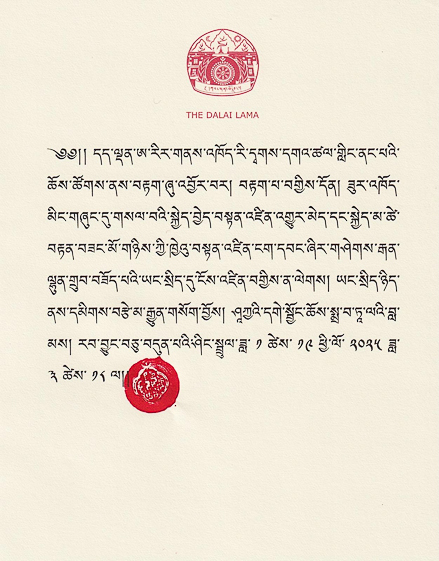 THE DALAI LAMA
༄༅།། དད་ལྡན་ཨ་རིར་གནས་འཁོད་རི་དྭགས་དགའ་ཚལ་གླིང་ནང་པའི་
ཆོས་ཚོགས་ནས་བརྟག་ཞུ་འབྱོར་བར། བརྟག་པ་བགྱིས་དོན། ཟུར་འཁོད་
མིང་གཞུང་དུ་གསལ་བའི་སྐྱེད་བྱེད་བསྟན་འཛིན་འགྱུར་མེད་དང་སྐྱེད་མ་ཚེ་
བརྟན་བཟང་མོ་གཉིས་ཀྱི་ཁྱེའུ་བསྟན་འཛིན་ངག་དབང་ཞིར་གཤེགས་རྒན་
ལྷུན་གྲུབ་བཟོད་པའི་ཡང་སྲིད་དུ་ངོས་འཛིན་བགྱིས་ན་ལེགས། ཡང་སྲིད་ཉིད་
ནས་དམིགས་བརྩེ་མ་རྒྱུན་གསོག་བྱོས། ཤཱཀྱའི་དགེ་སློང་ཆོས་སྨྲ་བ་ཏཱ་ལའི་བླ་
མས། རབ་བྱུང་བཅུ་བདུན་པའི་ཤིང་སྦྲུལ་ཟླ་ ༡ ཚེས་ ༡༩ ཕྱི་ལོ་ ༢༠༢༥ ཟླ་
༣ ཚེས་ ༡༨ ལ།།